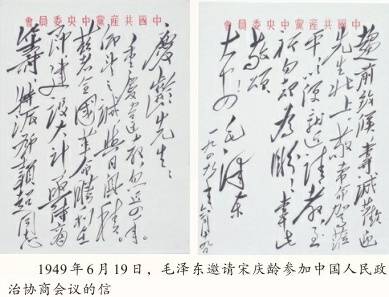 中國共產黨中央委員會
慶齡先生：
重慶違教，忽近四年。
仰望之誠，與日俱積。
茲者全國革命勝利在
即，建設大計，亟待商
籌，特派鄧穎超同志
中國共產黨中央委員會
趨前致候，專誠歡迎
先生北上。敬希命駕蒞
平，以便就近請教，至
祈勿卻為盼！專此
敬頌
大安！ 毛澤東
一九四九年六月十九日
1949年6月19日，毛泽东邀请宋庆龄参加中国人民政
治协商会议的信